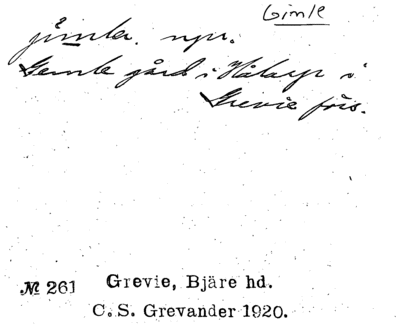 Gimle
jimla. npr.
Gemle gård i Hålarp i
Grevie förs.
№ 261 Grevie, Bjäre hd.
C. S. Grevander 1920.